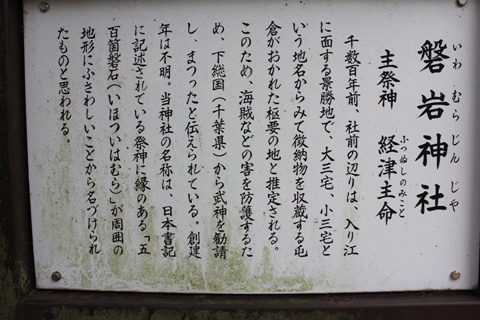 磐岩神社
いわむらじんじゃ
主祭神　経津主命
ふつぬしのみこと
千数百年前、社前の辺りは、入り江
に面する景勝地で、大三宅、小三宅と
いう地名からみて徴納物を収蔵する屯
倉がおかれた枢要の地と推定される。
このため、海賊などの害を防護するた
め、下総国（千葉県）から武神を勧請
し、まつったと伝えられている。創建
年は不明。当神社の名称は、日本書記
に記述されている祭神に縁のある「五
百箇磐石（いほついはむら）」が周囲の
地形にふさわしいことから名づけられ
たものと思われる。